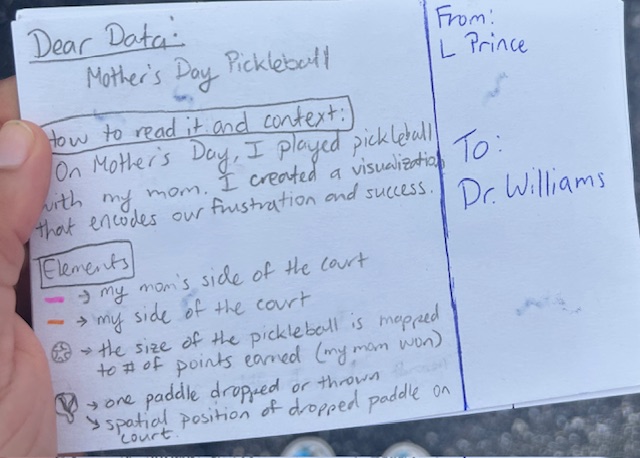 Dear Data:
Mother's Day Pickleball
How to read it and context:
On Mother's Day, I played pickleball
with my mom. I created a visualization
that encodes our frustration and success.
Elements
→ my mom's side of the court
→ my side of the court
→ the size of the pickleball is mapped
to # of points earned (my mom won)
→ one paddle dropped or thrown
↘ spatial position of dropped paddle on
court.
From:
L Prince
To:
Dr. Williams